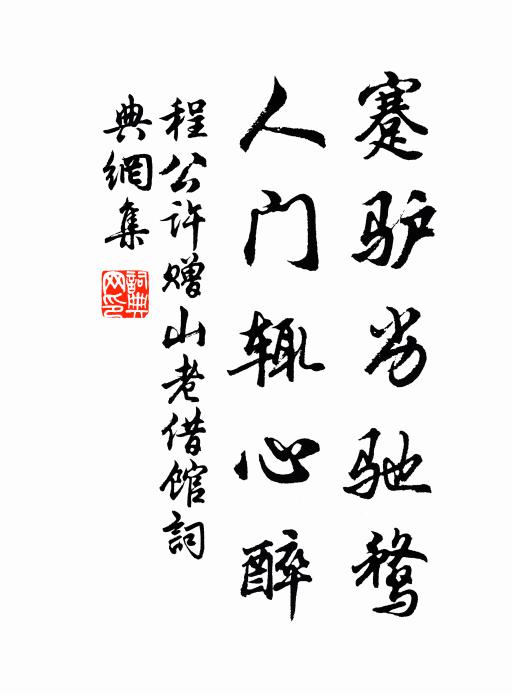 蹇驴劣驰骛
人门辄心醉
程公许赠山老借馆詞
典網集
詞典网印